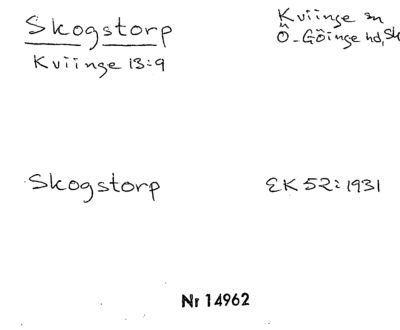 Skogstorp
Kviinge sn
Ö-Göinge hd, Sk
Kviinge 13:9
Skogstorp
EK 52:1931
Nr 14962